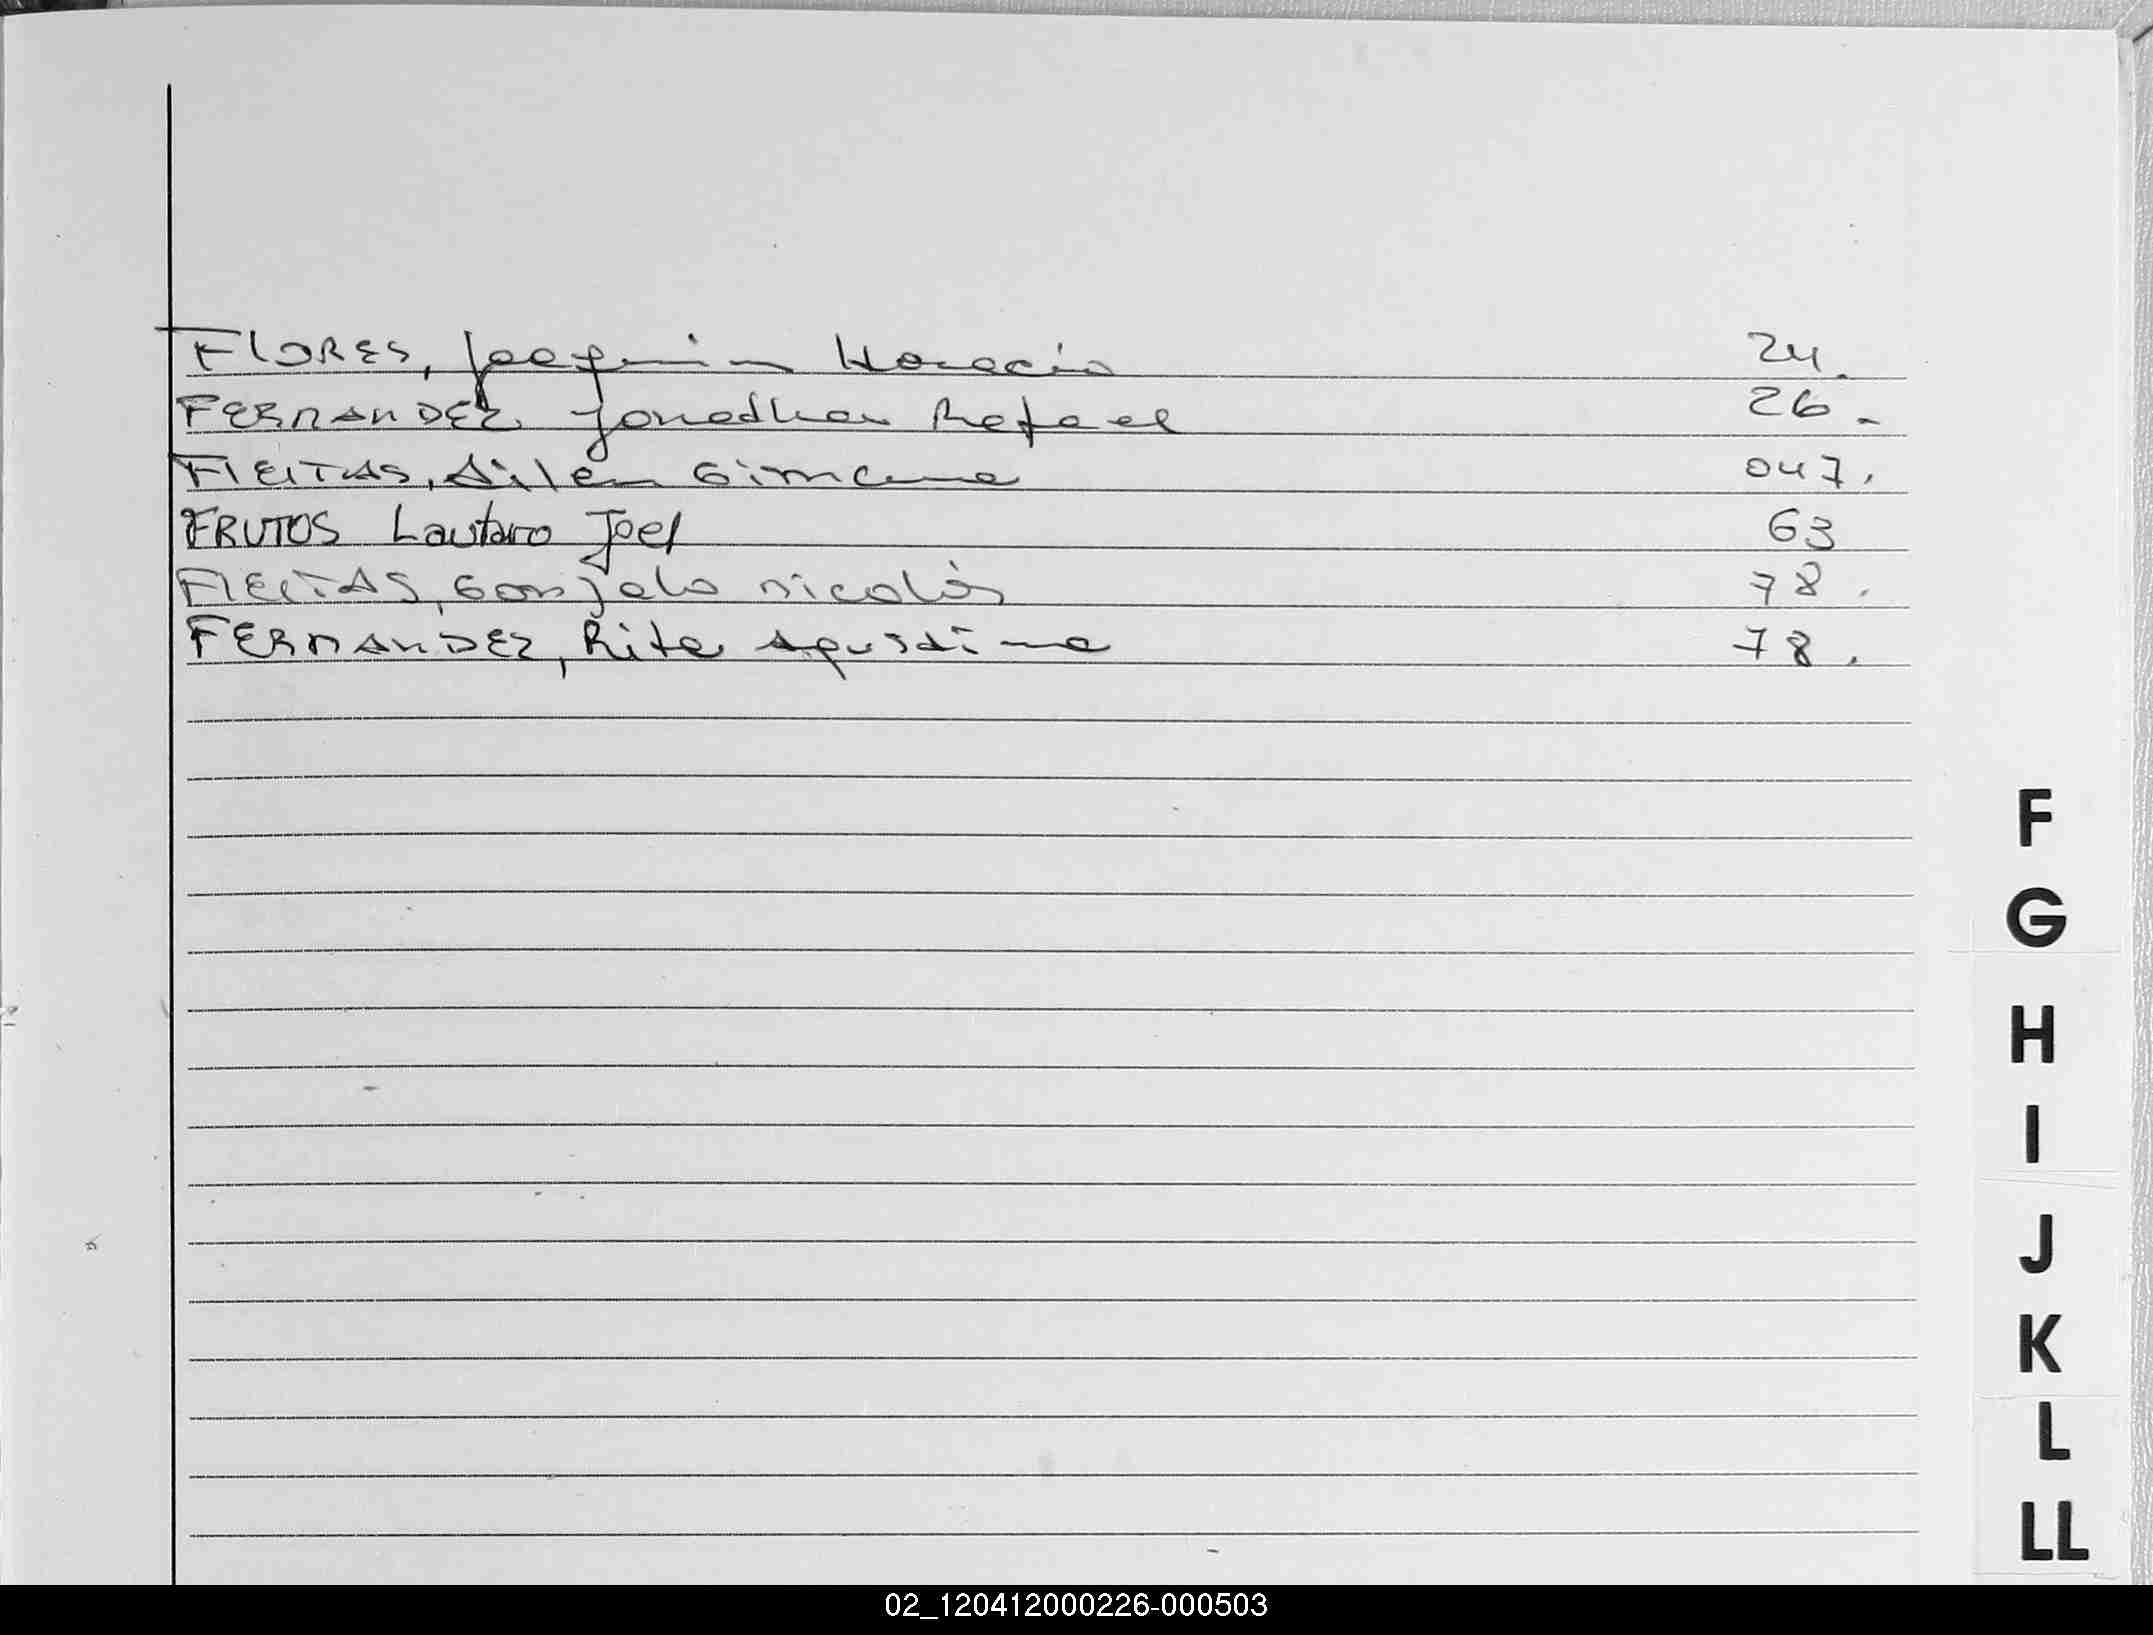 FLORES, Joaquin Horacio 24.
FERNANDEZ Jonathan Rafael 26.-
FLEITAS, Ailen Gimena 047.
FRUTOS Lautaro Joel 63
FLEITAS, Gonzalo Nicolás 78.
FERNANDEZ, Rita Agustina 78.
F
G
H
I
J
K
L
LL
02_120412000226-000503